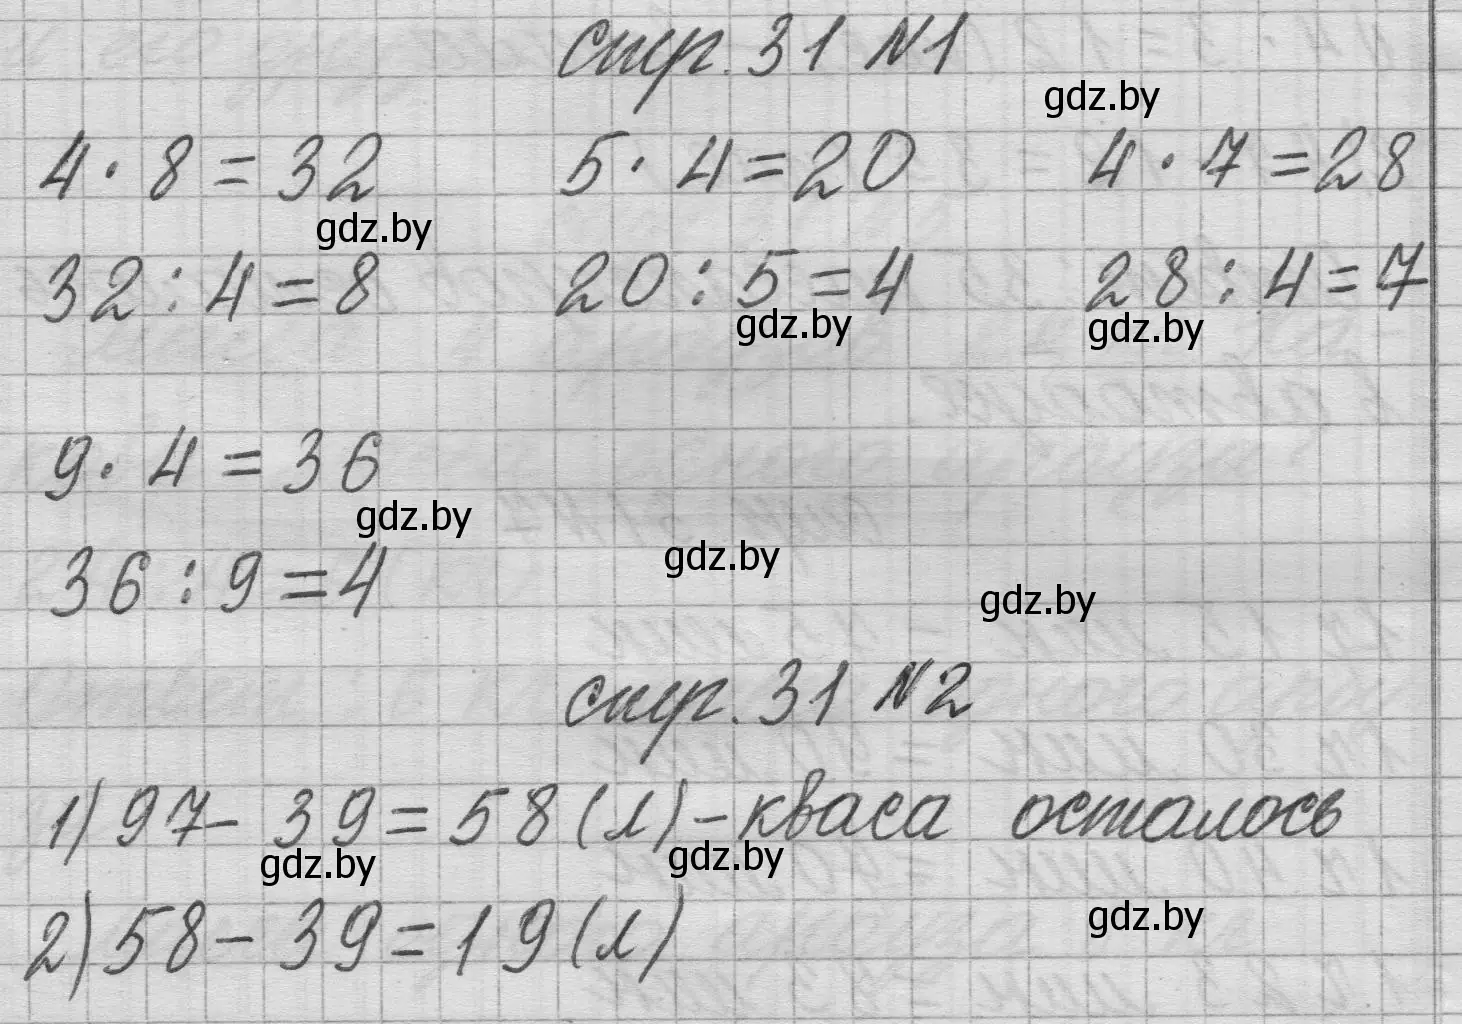 стр. 31 №1
gdz.by
4 · 8 = 32 5 · 4 = 20 4 · 7 = 28
gdz.by
32 : 4 = 8 20 : 5 = 4 28 : 4 = 7
gdz.by gdz.by
9 · 4 = 36
gdz.by gdz.by
36 : 9 = 4
gdz.by
стр. 31 №2
1) 97 - 39 = 58 (л) - кваса осталось
gdz.by gdz.by
2) 58 - 39 = 19 (л)
gdz.by